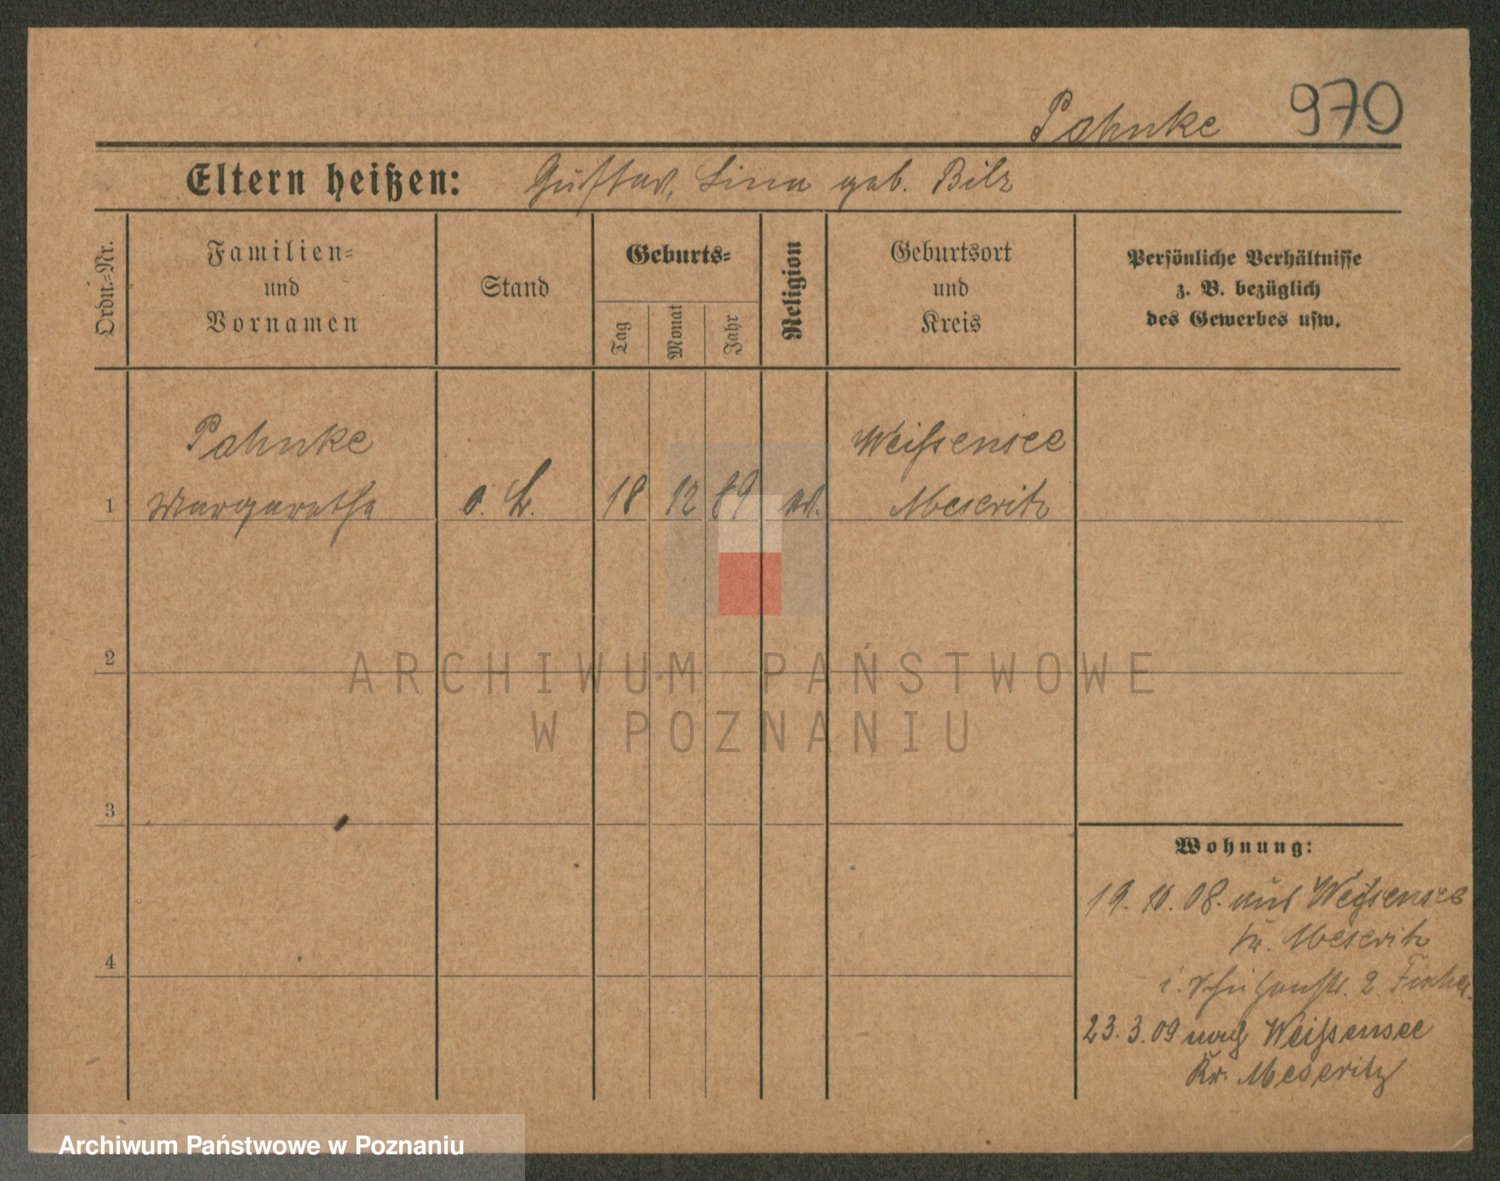 Pahnke 970
Eltern heißen: Gustav, Lina geb. Bilz
Ordn.=Nr.
Familien=
und
Vornamen
Stand
Geburts=
Tag
Monat
Jahr
Religion
Geburtsort
und
Kreis
Persönliche Verhältnisse
z. B. bezüglich
des Gewerbes usw.
Pahnke
Weißensee
1 Margarethe o. 18 12 89 Meseritz
2
3
4
Wohnung:
19. 08. aus Weißensee
Kr. Meseritz
i. Schützenstr. 2 Fischer
23. 3. 09 nach Weißensee
Kr. Meseritz
ARCHIWUM PAŃSTWOWE
W POZNANIU
Archiwum Państwowe w Poznaniu